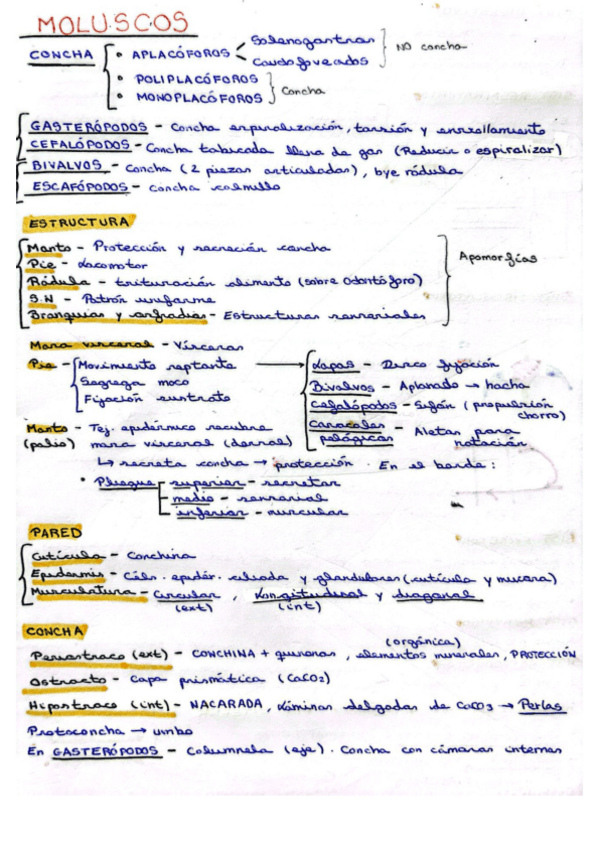 MOLUSCOS
CONCHA • APLACÓFOROS Solenogastros NO concha
Caudofoveados
• POLIPLACÓFOROS Concha
• MONOPLACÓFOROS
GASTERÓPODOS - Concha espiralización, torsión y enrollamiento
CEFALÓPODOS - Concha tabicada llena de gas (Reducir o espiralizar)
BIVALVOS - Concha (2 piezas articuladas), bye rádula
ESCAFÓPODOS - Concha colmillo
ESTRUCTURA
Manto - Protección y secreción concha
Pie - Locomotor
Rádula - trituración alimento (sobre Odontóforo) Apomorfías
S.N - Patrón uniforme
Branquias y osfradios - Estructuras sensoriales
Masa visceral - Vísceras
Pie - Movimiento reptante → Lapas - Disco fijación
Segrega moco Bivalvos - Aplanado → hacha
Fijación sustrato Cefalópodos - Sifón (propulsión chorro)
Manto - Tej. epidérmico recubre Caracolas pelágicas - Aletas para natación
(palio) masa visceral (dorsal)
↳ secreta concha → protección. En el borde:
• Pliegue superior - secretor
medio - sensorial
inferior - muscular
PARED
Cutícula - Conchina
Epidermis - Céls. epidér. ciliada y glandulares (cutícula y mucosa)
Musculatura - Circular, Longitudinal y diagonal
(ext) (int)
CONCHA
(orgánica)
Periostraco (ext) - CONCHINA + quinonas, elementos minerales, PROTECCIÓN
Ostracto - Capa prismática (CaCO2)
Hipostraco (int) - NACARADA, láminas delgadas de CaCO3 → Perlas
Protoconcha → umbo
En GASTERÓPODOS - Columnela (eje). Concha con cámaras internas